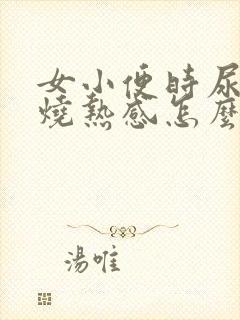 女小便時尿
燒熱感怎麼
湯唯